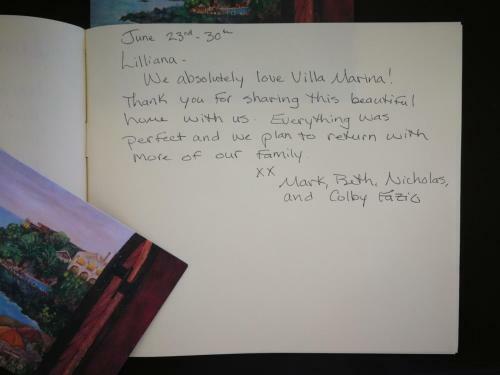 June 23rd - 30th
Lilliana -
We absolutely love Villa Marina!
Thank you for sharing this beautiful
home with us. Everything was
perfect and we plan to return with
more of our family.
xx
Mark, Beth, Nicholas,
and Colby Fazio